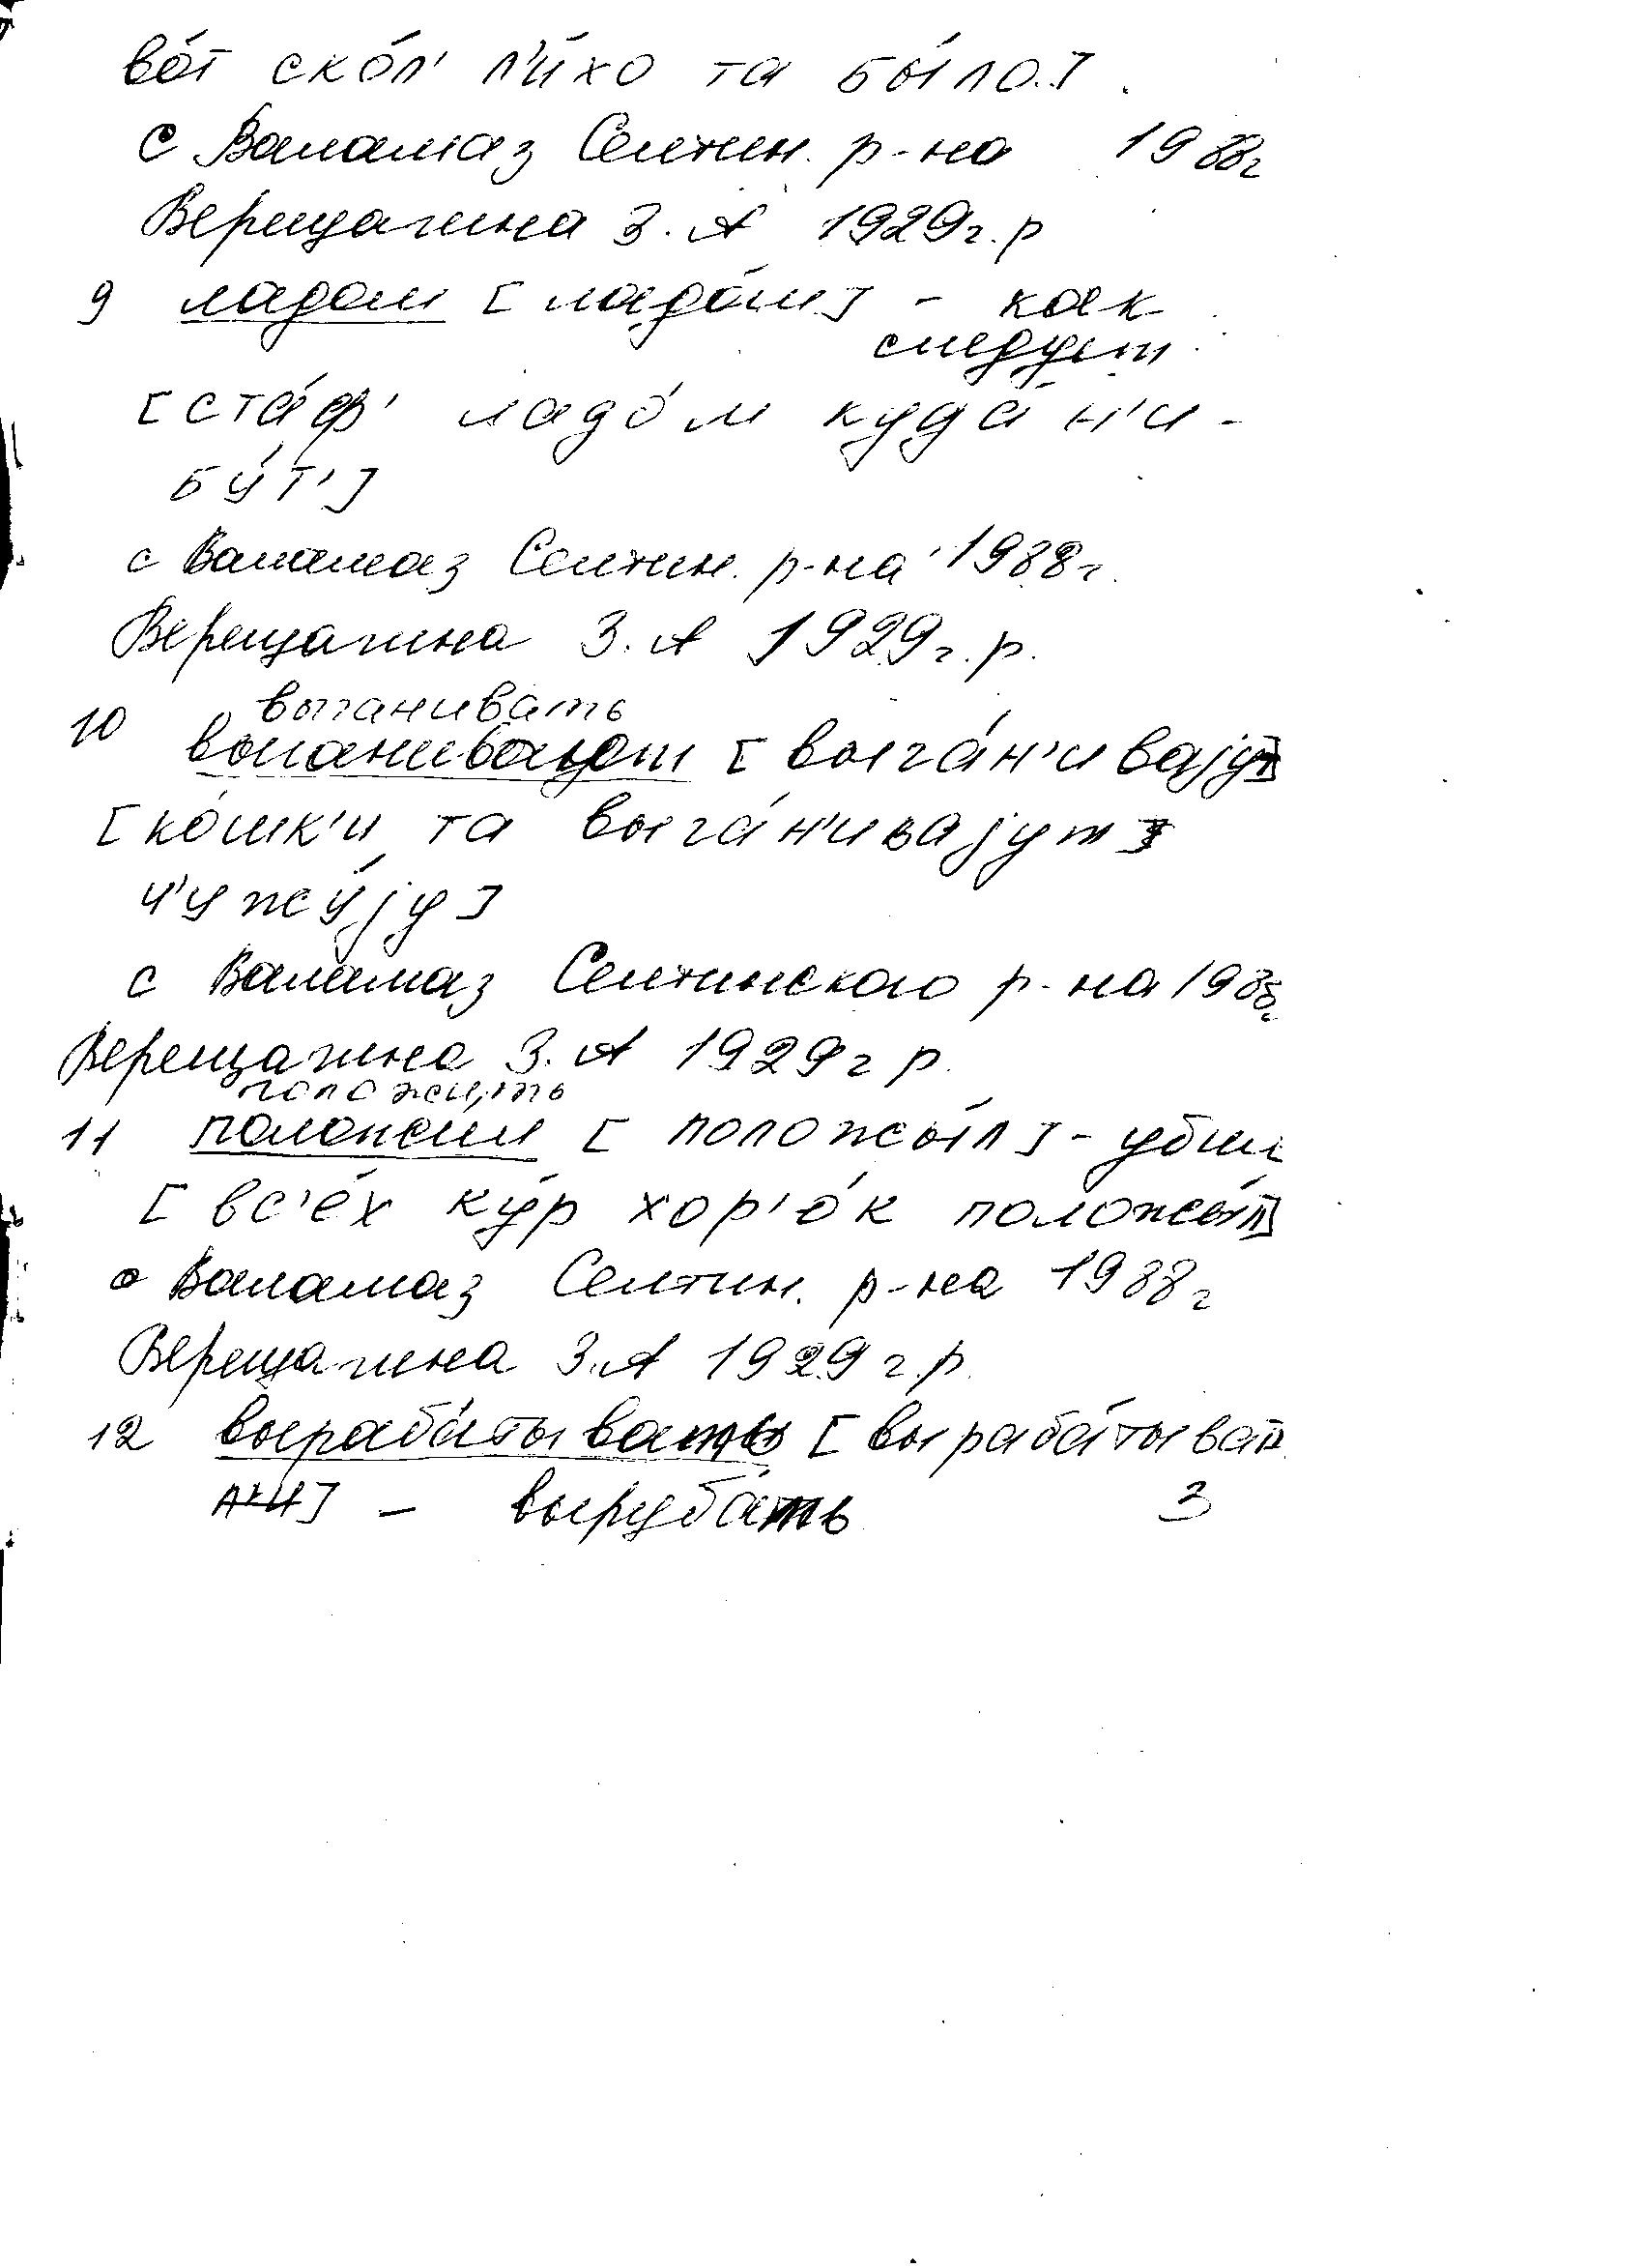 во́т ско́л' л'и́хо та бы́ло.]
с Валамаз Селтин. р-на 1988г
Верещагина З. А 1929г. р
9 ладом [ладо́м] - как
следует
[ста́ф' ладо́м куда́ н'и-
бу́т']
с Валамаз Селтин. р-на 1988г.
Верещагина З. А 1929г. р.
выганивать
10 выганивают [выга́н'ивајут]
[ко́шк'и та выга́н'ивајут
ч'ужу́ју]
с Валамаз Селтинского р-на 1988г
Верещагина З. А 1929г р.
положить
11 положил [положы́л] - убил
[вс'е́х ку́р хор'о́к положы́л]
с Валамаз Селтин. р-на 1988г
Верещагина З. А 1929г.р.
12 выраба́тывать [выраба́тыват
] - вырубать 3